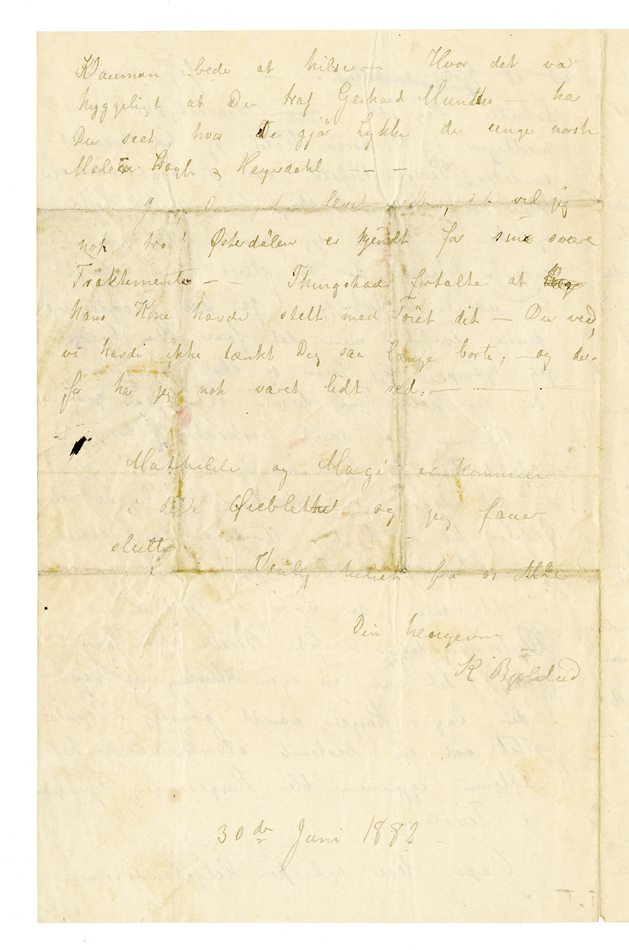 bede at hilse — Hvor det va
hyggeligt at Du traf Gerhard Munthe — ha
Du seet, hvor De gjør Lykke de unge norsk
Maler Krogh & Heyerdahl. — —
levet vil jeg
nok tro! Østerdalen er kjendt for sine svære
Traktementer — — Thingstad fortalte at
hans Kone havde stelt med Tøiet dit — Du ved,
vi havde ikke tænkt Dig saa længe borte, — og der-
for har jeg nok været lidt ræd. — — —
Mathilde og er kommen
i dette Øieblikket og jeg faaer
slutte
Venlig hilset fra os Alle
Din hengivne
K
30de Juni 1882